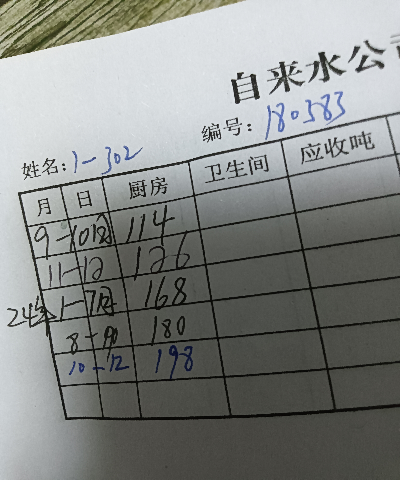 自来水公司
姓名: 1-302 编号: 180583
月 日 厨房 卫生间 应收吨
9-10月 114
11-12 126
24年 1-7月 168
8-9 180
10-12 198